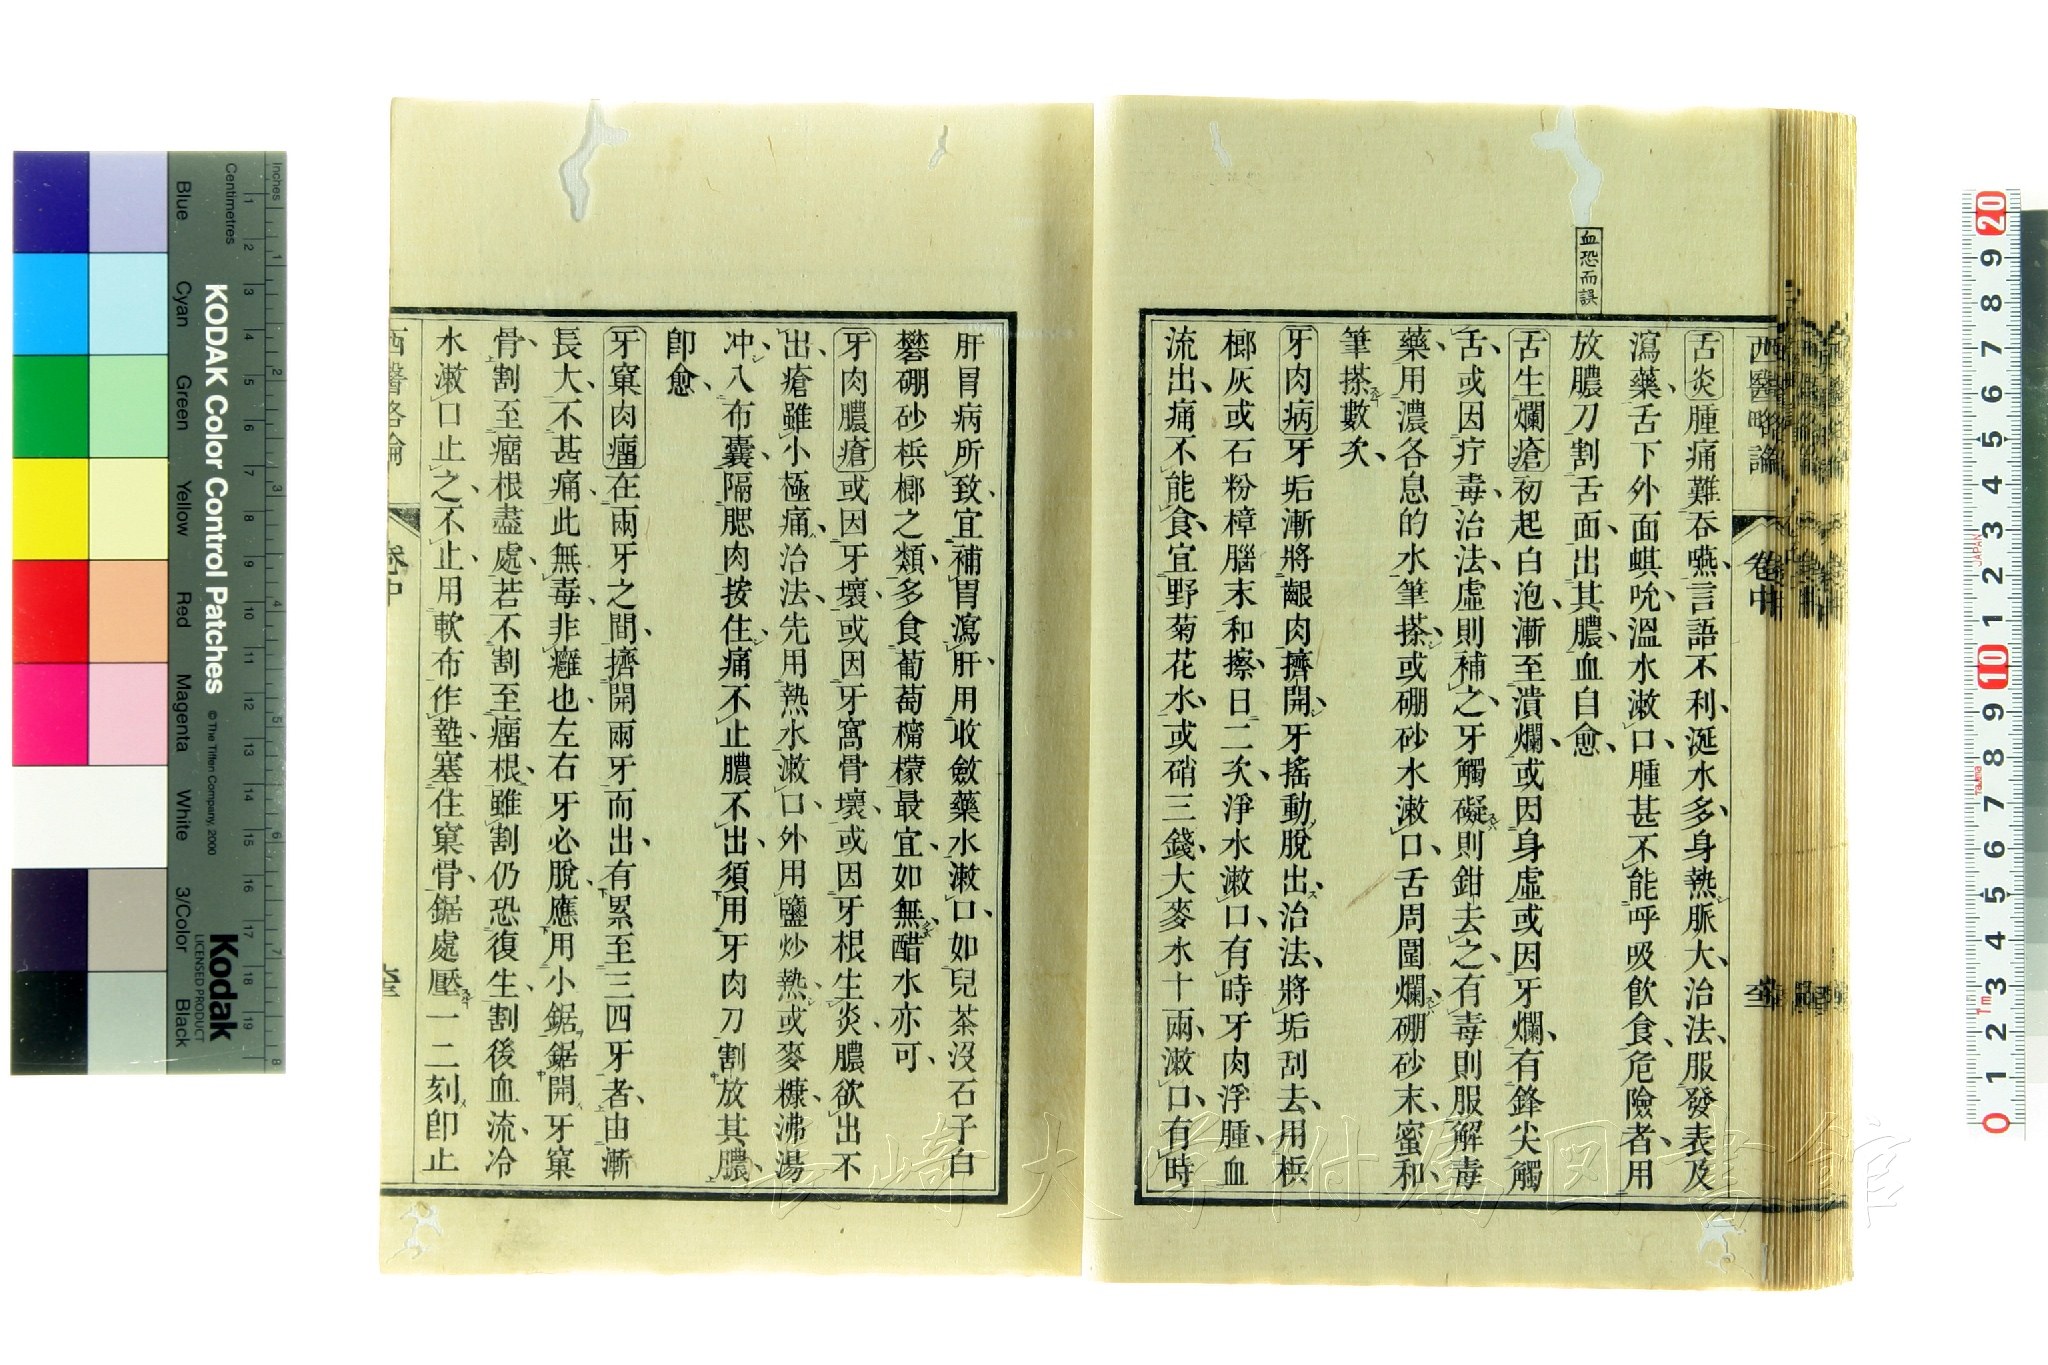 血恐而誤
西醫略論
卷中
舌炎腫痛難吞嚥、言語不利、涎水多、身熱脈大、治法服發表及
瀉藥、舌下外面蜞吮、溫水漱口、腫甚不能呼吸飲食、危險者、用
放膿刀割舌面、出其膿、血自愈、
舌生爛瘡初起白泡、漸至潰爛、或因身虛或因牙爛、有鋒尖觸
舌、或因疔毒、治法、虛則補之、牙觸礙則鉗去之、有毒則服解毒
藥、用濃各息的水筆搽、或硼砂水漱口、舌周圍爛、硼砂末、蜜和、
筆搽數次、
牙肉病牙垢漸將齦肉擠開、牙搖動脫出、治法、將垢刮去、用梹
榔灰或石粉樟腦末和擦、日二次、淨水漱口、有時牙肉浮腫、血
流出、痛不能食、宜野菊花水、或硝三錢、大麥水十兩、漱口、有時
肝胃病所致、宜補胃瀉肝、用收斂藥水漱口、如兒茶沒石子白
礬硼砂梹榔之類、多食葡萄檸檬最宜、如無醋水亦可、
牙肉膿瘡或因牙壞、或因牙窩骨壞、或因牙根生炎、膿欲出不
出、瘡雖小極痛、治法、先用熱水漱口、外用鹽炒熱、或麥糠、沸湯
冲、入布囊、隔腮肉按住、痛不止膿不出、須用牙肉刀割放其膿、
卽愈、
牙窠肉瘤在兩牙之間、擠開兩牙而出、有累至三四牙者、由漸
長大、不甚痛、此無毒、非癰也、左右牙必脫、應用小鋸鋸開牙窠
骨、割至瘤根盡處、若不割至瘤根、雖割仍恐復生、割後血流、冷
水漱口止之、不止、用軟布作墊、塞住窠骨、鋸處壓一二刻卽止
西醫略論
卷中